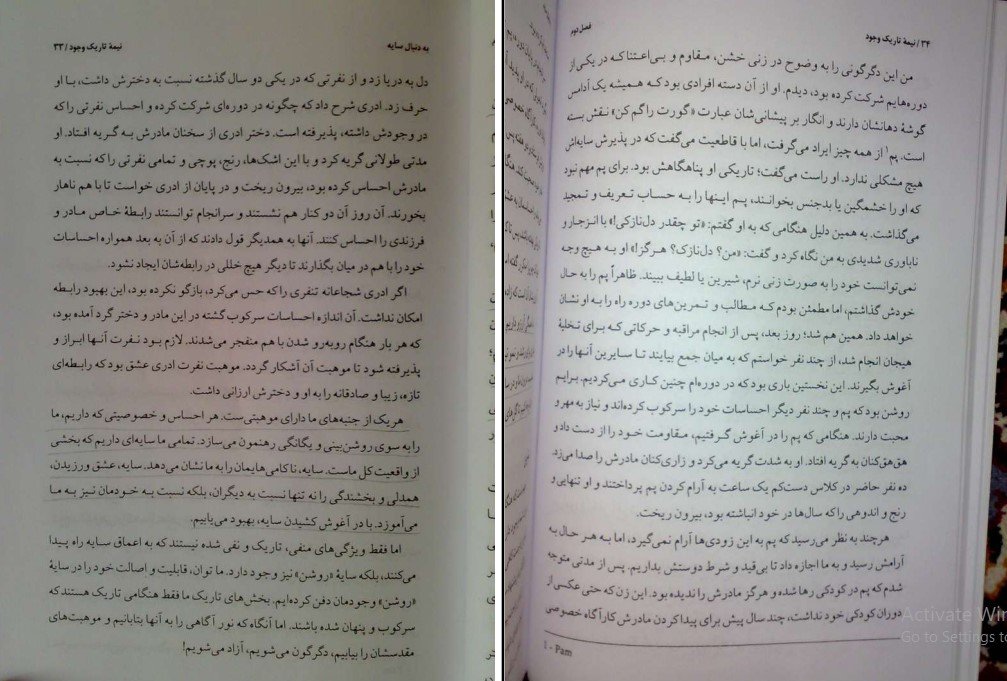 به دنبال سایه
نیمهٔ تاریک وجود / ۳۳
دل به دریا زد و از نفرتی که در یکی دو سال گذشته نسبت به دخترش داشت، با او
حرف زد. ادری شرح داد که چگونه در دوره‌ای شرکت کرده و احساس نفرتی را که
در وجودش داشته، پذیرفته است. دختر ادری از سخنان مادرش به گریه افتاد. او
مدتی طولانی گریه کرد و با این اشک‌ها، رنج، پوچی و تمامی نفرتی را که نسبت به
مادرش احساس کرده بود، بیرون ریخت و در پایان از ادری خواست تا با هم ناهار
بخورند. آن روز آن دو کنار هم نشستند و سرانجام توانستند رابطهٔ خاص مادر و
فرزندی را احساس کنند. آنها به همدیگر قول دادند که از آن به بعد همواره احساسات
خود را با هم در میان بگذارند تا دیگر هیچ خللی در رابطه‌شان ایجاد نشود.
اگر ادری شجاعانه تنفری را که حس می‌کرد، بازگو نکرده بود، این بهبود رابطه
امکان نداشت. آن اندازه احساسات سرکوب گشته در این مادر و دختر گرد آمده بود،
که هر بار هنگام روبه‌رو شدن با هم منفجر می‌شدند. لازم بود نفرت آنها ابراز و
پذیرفته شود تا موهبت آن آشکار گردد. موهبت نفرت ادری عشق بود که رابطه‌ای
تازه، زیبا و صادقانه را به او و دخترش ارزانی داشت.
هر یک از جنبه‌های ما دارای موهبتی‌ست. هر احساس و خصوصیتی که داریم، ما
را به سوی روشن‌بینی و یگانگی رهنمون می‌سازد. تمامی ما سایه‌ای داریم که بخشی
از واقعیت کل ماست. سایه، ناکامی‌هایمان را به ما نشان می‌دهد. سایه، عشق ورزیدن،
همدلی و بخشندگی را نه تنها نسبت به دیگران، بلکه نسبت به خودمان نیز به ما
می‌آموزد. با در آغوش کشیدن سایه، بهبود می‌یابیم.
اما فقط ویژگی‌های منفی، تاریک و نفی شده نیستند که به اعماق سایه راه پیدا
می‌کنند، بلکه سایهٔ «روشن» نیز وجود دارد. ما توان، قابلیت و اصالت خود را در سایهٔ
«روشن» وجودمان دفن کرده‌ایم. بخش‌های تاریک ما فقط هنگامی تاریک هستند که
سرکوب و پنهان شده باشند. اما آنگاه که نور آگاهی را به آنها بتابانیم و موهبت‌های
مقدسشان را بیابیم، دگرگون می‌شویم، آزاد می‌شویم!
۳۴ / نیمهٔ تاریک وجود
فصل دوم
من این دگرگونی را به وضوح در زنی خشن، مقاوم و بی‌اعتنا که در یکی از
دوره‌هایم شرکت کرده بود، دیدم. او از آن دسته افرادی بود که همیشه یک آدامس
گوشهٔ دهانشان دارند و انگار بر پیشانی‌شان عبارت «گورت را گم کن» نقش بسته
است. پم۱ از همه چیز ایراد می‌گرفت، اما با قاطعیت می‌گفت که در پذیرش سایه‌اش
هیچ مشکلی ندارد. او راست می‌گفت؛ تاریکی او پناهگاهش بود. برای پم مهم نبود
که او را خشمگین یا بدجنس بخوانند، پم اینها را به حساب تعریف و تمجید
می‌گذاشت. به همین دلیل هنگامی که به او گفتم: «تو چقدر دل‌نازکی!» با انزجار و
ناباوری شدیدی به من نگاه کرد و گفت: «من؟ دل‌نازک؟ هرگز!» او به هیچ وجه
نمی‌توانست خود را به صورت زنی نرم، شیرین یا لطیف ببیند. ظاهراً پم را به حال
خودش گذاشتم، اما مطمئن بودم که مطالب و تمرین‌های دوره راه را به او نشان
خواهد داد. همین هم شد؛ روز بعد، پس از انجام مراقبه و حرکاتی که برای تخلیهٔ
هیجان انجام شد، از چند نفر خواستم که به میان جمع بیایند تا سایرین آنها را در
آغوش بگیرند. این نخستین باری بود که در دوره‌ام چنین کاری می‌کردیم. برایم
روشن بود که پم و چند نفر دیگر احساسات خود را سرکوب کرده‌اند و نیاز به مهر و
محبت دارند. هنگامی که پم را در آغوش گرفتیم، مقاومت خود را از دست داد و
هق‌هق‌کنان به گریه افتاد. او به شدت گریه می‌کرد و زاری‌کنان مادرش را صدا می‌زد.
ده نفر حاضر در کلاس دست‌کم یک ساعت به آرام کردن پم پرداختند و او تنهایی و
رنج و اندوهی را که سال‌ها در خود انباشته بود، بیرون ریخت.
هرچند به نظر می‌رسید که پم به این زودی‌ها آرام نمی‌گیرد، اما به هر حال به
آرامش رسید و به ما اجازه داد تا بی‌قید و شرط دوستش بداریم. پس از مدتی متوجه
شدم که پم در کودکی رها شده و هرگز مادرش را ندیده بود. این زن که حتی عکسی از
دوران کودکی خود نداشت، چند سال پیش برای پیدا کردن مادرش کارآگاه خصوصی
1 - Pam
Activate Win
Go to Settings to